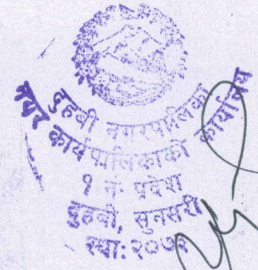 दुहबी नगरपालिका
नगर कार्यपालिकाको कार्यालय
१ नं प्रदेश
दुहबी, सुनसरी